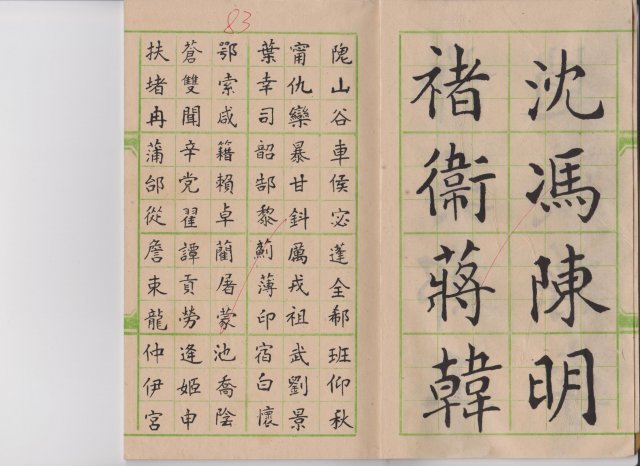 沈馮陳明
褚衛蔣韓
83
隗山谷車侯宓蓬全郗班仰秋
甯仇欒暴甘鈄厲戎祖武劉景
葉幸司韶郜黎薊薄印宿白懷
鄂索咸籍賴卓藺屠蒙池喬陰
蒼雙聞辛党翟譚貢勞逄姬申
扶堵冉蒲邰從詹束龍仲伊宮